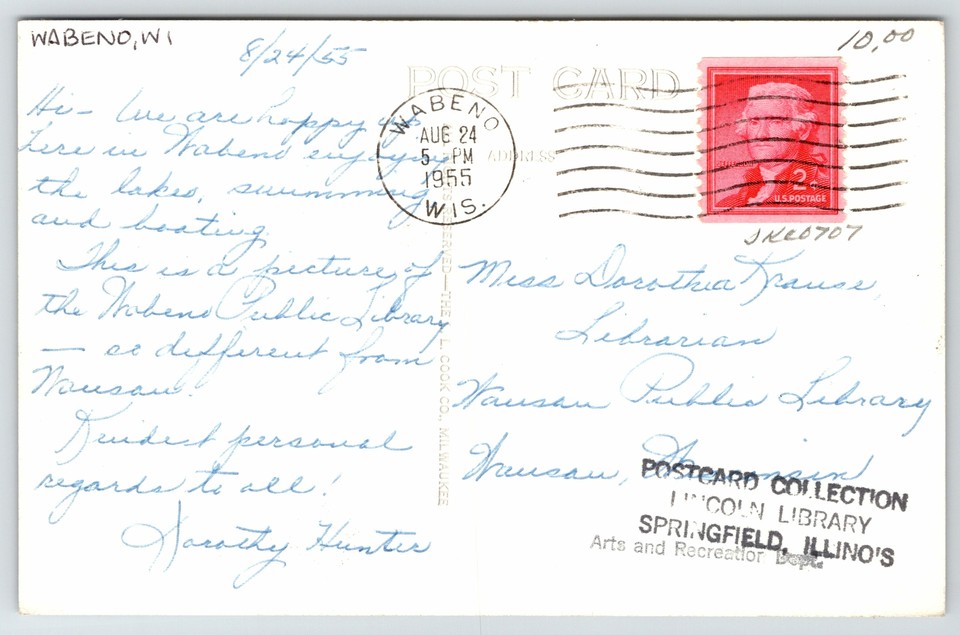 WABENO, WI
8/24/55
10.00
POST CARD
WABENO
AUG 24
5 PM
1955
WIS.
ADDRESS
2¢
U.S. POSTAGE
JKC0707
Hi - We are happy to be
here in Wabeno enjoying
the lakes, swimming
and boating.
This is a picture of
the Wabeno Public Library
— so different from
Wausau.
Kindest personal
regards to all!
Dorothy Hunter
RESERVED—THE L. L. COOK CO., MILWAUKEE
Miss Dorothea Krause,
Librarian
Wausau Public Library
Wausau, Wisconsin
POSTCARD COLLECTION
LINCOLN LIBRARY
SPRINGFIELD, ILLINO'S
Arts and Recreation Dept.